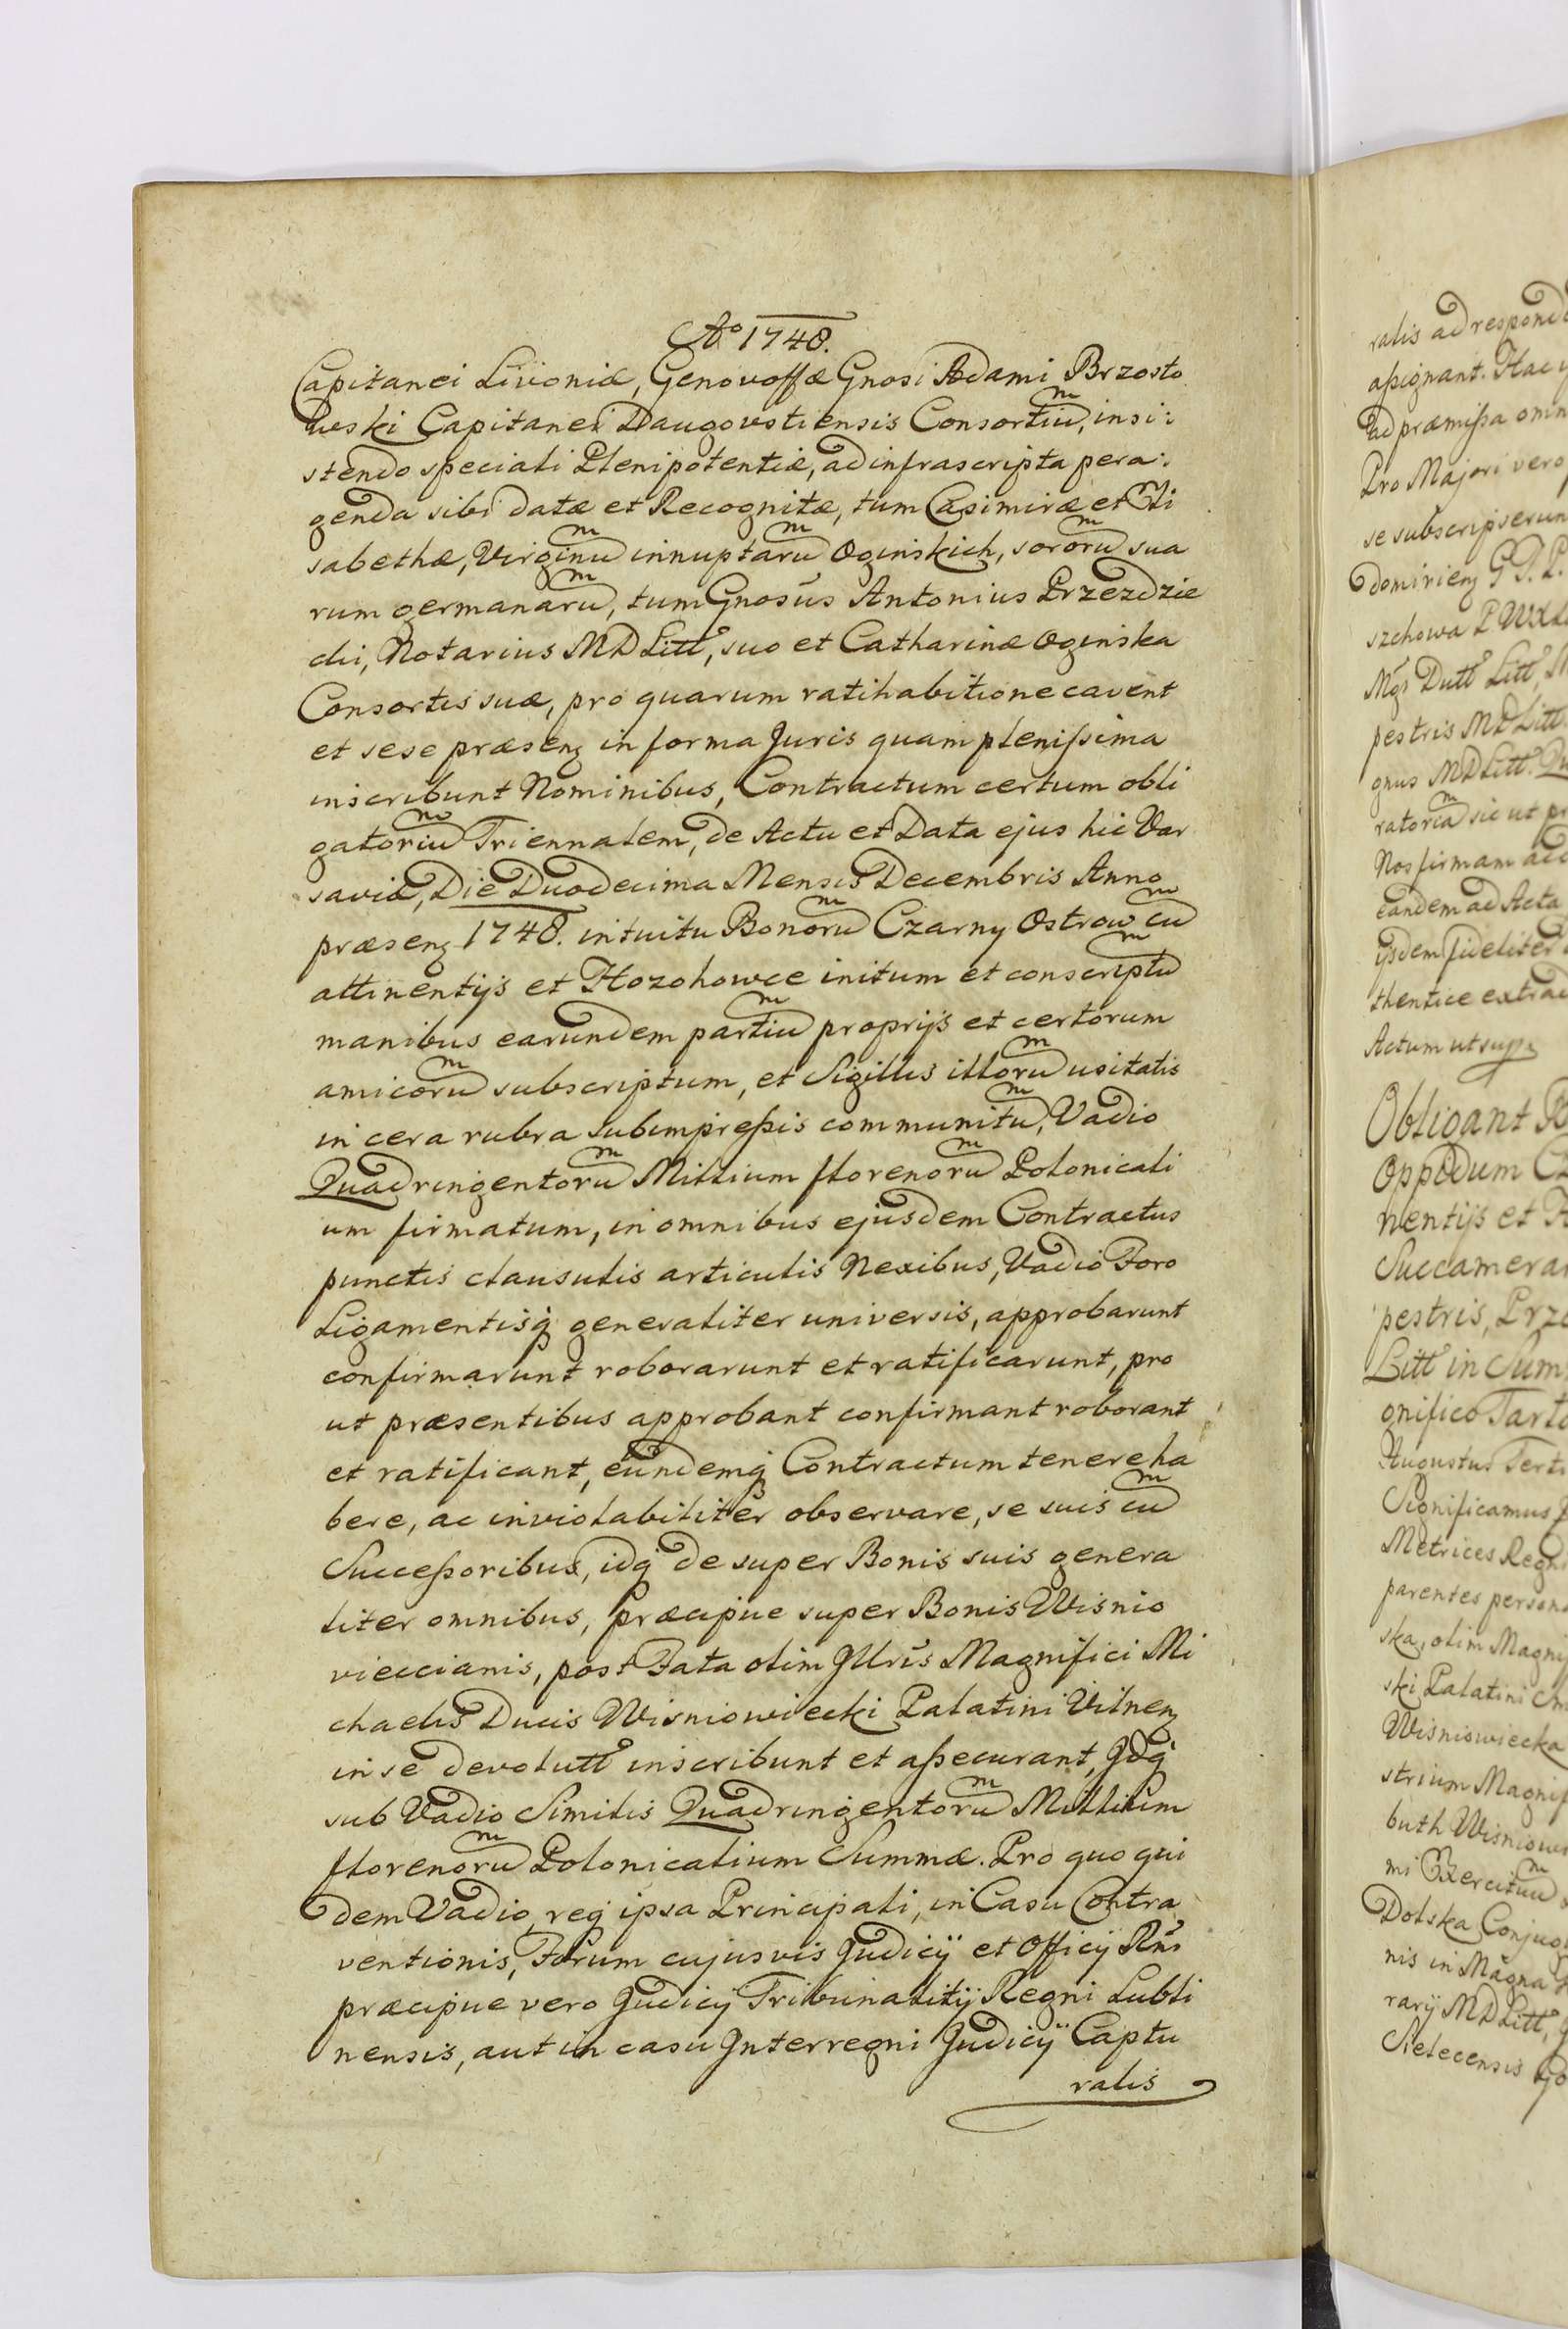 Ao 1748.
Capitanei Livoniæ, Genovoffæ Gnosi Adami Brzosto
wski Capitanei Daugovstiensis Consortiũ, insi:
stendo speciali Plenipotentiæ, ad infrascripta pera:
genda sibi datæ et Recognitæ, tum Casimiræ et Eli
sabethæ, Virginũ innuptarũ Oginskich, sororũ sua
rum germanarũ, tum Gnosus Antonius Przezdzie
cki, Notarius MD Litt, suo et Catharinæ Oginska
Consortis suæ, pro quarum ratihabitione cavent
et sese præsenz in forma Juris quam plenissima
inscribunt Nominibus, Contractum certum obli
gatoriũ Triennalem, de Actu et Data ejus hic Var
saviæ, Die Duodecima Mensis Decembris Anno
præsenz 1748. intuitu Bonorũ Czarny Ostrow cũ
attinentijs et Hozohowce initum et conscriptũ
manibus earundem partiũ proprijs et certorum
amicorũ subscriptum, et Sigillis illorũ usitatis
in cera rubra subimpressis communitũ, Vadio
Quadringentorũ Millium florenorũ Polonicali
um firmatum, in omnibus ejusdem Contractus
punctis clausulis articulis Nexibus, Vadio Foro
Ligamentisq generaliter universis, approbarunt
confirmarunt roborarunt et ratificarunt, pro
ut præsentibus approbant confirmant roborant
et ratificant, eundemq Contractum tenere ha
bere, ac inviolabiliter observare, se suis cũ
Successoribus, idq de super Bonis suis genera
liter omnibus, præcipue super Bonis Wisnio
vieccianis, post Fata olim Jllris Magnifici Mi
chaelis Ducis Wisniowiecki Palatini Vilnenz
in se devolutt inscribunt et assecurant, Jdq
sub Vadio Similis Quadringentorũ Millium
florenorũ Polonicalium Summæ. Pro quo qui
dem Vadio, req ipsa Principali, in Casu Contra
ventionis, Forum cujusvis Judicij et Officij Rni
præcipue vero Judicij Tribunalitij Regni Lubli
nensis, aut in casu Jnterregni Judicij Captu
ralis
ralis ad respond
assignant. Hac
ad præmissa omn
Pro Majori vero
se subscripserun
szchowa
pestris MD Litt
gnus MD Litt.
sic ut pr
Nos firmam
eandem ad Acta
ijsdem fideliter
thentice extrad
Actum ut supr
Obligant
Oppidum Cz
nentijs et H
Succamerar
pestris, Prze
Litt in Sum
gnifico Tarto
Augustus Terti
Significamus
Metrices Regni
parentes persona
ska, olim Magnif
ski Palatini
Wisniowiecka
strium Magnif
buth Wisniowi
mi Exercituũ
Dolska Conjug
nis in Magna
rarij MD Litt,
Sielecensis